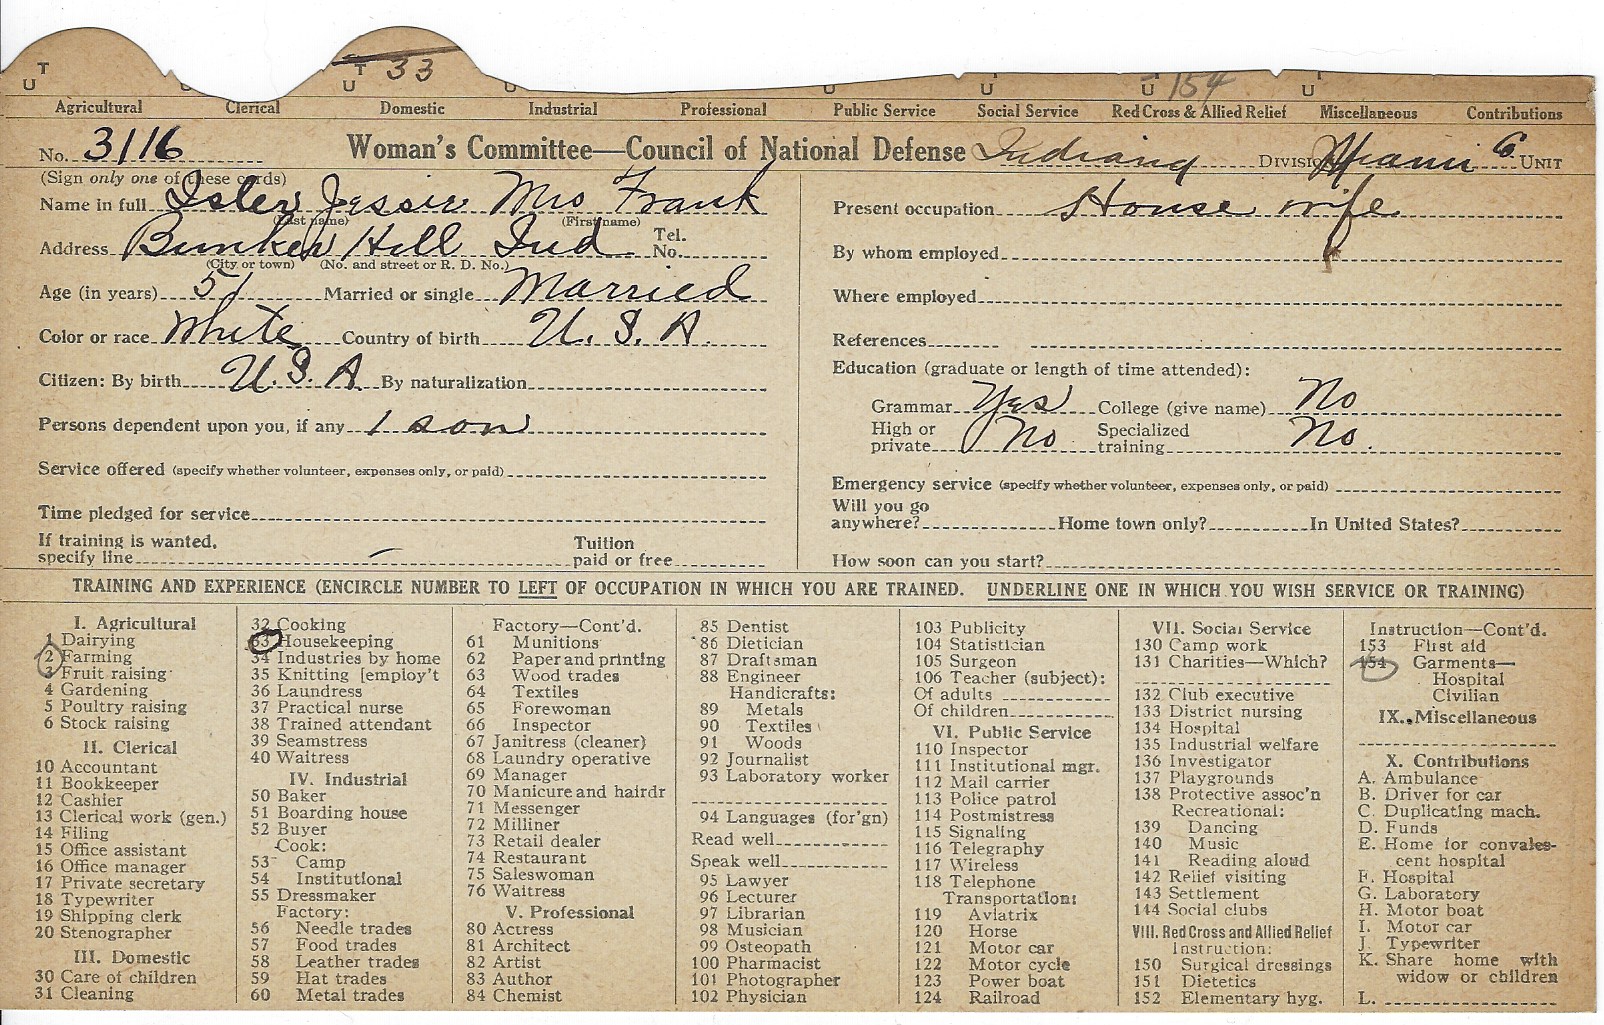 T T 33 154
U U U U U U
Agricultural Clerical Domestic Industrial Professional Public Service Social Service Red Cross & Allied Relief Miscellaneous Contributions
No. 3116 Woman's Committee—Council of National Defense Indiana Division Miami 6 Unit
(Sign only one of these cards)
Name in full Isler Jessie Mrs Frank
(Last name) (First name)
Address Bunker Hill Ind Tel. No.
(City or town) (No. and street or R. D. No.)
Age (in years) 51 Married or single Married
Color or race White Country of birth U. S. A.
Citizen: By birth U. S. A By naturalization
Persons dependent upon you, if any 1 son
Service offered (specify whether volunteer, expenses only, or paid)
Time pledged for service
If training is wanted, specify line — Tuition paid or free
Present occupation House wife
By whom employed
Where employed
References
Education (graduate or length of time attended):
Grammar Yes College (give name) No
High or private No Specialized training No.
Emergency service (specify whether volunteer, expenses only, or paid)
Will you go anywhere? Home town only? In United States?
How soon can you start?
TRAINING AND EXPERIENCE (ENCIRCLE NUMBER TO LEFT OF OCCUPATION IN WHICH YOU ARE TRAINED. UNDERLINE ONE IN WHICH YOU WISH SERVICE OR TRAINING)
I. Agricultural
1 Dairying
2 Farming
3 Fruit raising
4 Gardening
5 Poultry raising
6 Stock raising
II. Clerical
10 Accountant
11 Bookkeeper
12 Cashier
13 Clerical work (gen.)
14 Filing
15 Office assistant
16 Office manager
17 Private secretary
18 Typewriter
19 Shipping clerk
20 Stenographer
III. Domestic
30 Care of children
31 Cleaning
32 Cooking
33 Housekeeping
34 Industries by home
35 Knitting [employ't
36 Laundress
37 Practical nurse
38 Trained attendant
39 Seamstress
40 Waitress
IV. Industrial
50 Baker
51 Boarding house
52 Buyer
Cook:
53 Camp
54 Institutional
55 Dressmaker
Factory:
56 Needle trades
57 Food trades
58 Leather trades
59 Hat trades
60 Metal trades
Factory—Cont'd.
61 Munitions
62 Paper and printing
63 Wood trades
64 Textiles
65 Forewoman
66 Inspector
67 Janitress (cleaner)
68 Laundry operative
69 Manager
70 Manicure and hairdr
71 Messenger
72 Milliner
73 Retail dealer
74 Restaurant
75 Saleswoman
76 Waitress
V. Professional
80 Actress
81 Architect
82 Artist
83 Author
84 Chemist
85 Dentist
86 Dietician
87 Draftsman
88 Engineer
Handicrafts:
89 Metals
90 Textiles
91 Woods
92 Journalist
93 Laboratory worker
94 Languages (for'gn)
Read well
Speak well
95 Lawyer
96 Lecturer
97 Librarian
98 Musician
99 Osteopath
100 Pharmacist
101 Photographer
102 Physician
103 Publicity
104 Statistician
105 Surgeon
106 Teacher (subject):
Of adults
Of children
VI. Public Service
110 Inspector
111 Institutional mgr.
112 Mail carrier
113 Police patrol
114 Postmistress
115 Signaling
116 Telegraphy
117 Wireless
118 Telephone
Transportation:
119 Aviatrix
120 Horse
121 Motor car
122 Motor cycle
123 Power boat
124 Railroad
VII. Social Service
130 Camp work
131 Charities—Which?
132 Club executive
133 District nursing
134 Hospital
135 Industrial welfare
136 Investigator
137 Playgrounds
138 Protective assoc'n
Recreational:
139 Dancing
140 Music
141 Reading aloud
142 Relief visiting
143 Settlement
144 Social clubs
VIII. Red Cross and Allied Relief
Instruction:
150 Surgical dressings
151 Dietetics
152 Elementary hyg.
Instruction—Cont'd.
153 First aid
154 Garments—
Hospital
Civilian
IX. Miscellaneous
X. Contributions
A. Ambulance
B. Driver for car
C. Duplicating mach.
D. Funds
E. Home for convales-
cent hospital
F. Hospital
G. Laboratory
H. Motor boat
I. Motor car
J. Typewriter
K. Share home with
widow or children
L.